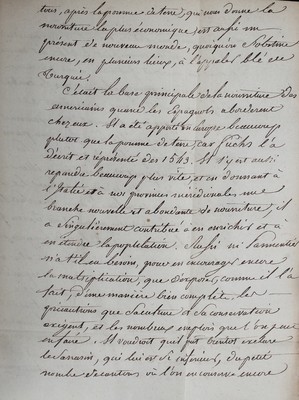 tres, après la pomme de terre, qui nous donne la
nourriture la plus économique, est aussi un
présent du nouveau monde, quoiqu'on s'obstine
encore, en plusieurs lieux, à l'appeler blé de
Turquie.
C'était la base principale de la nourriture des
américains quand les Espagnols abordèrent
chez eux. Il a été apporté en Europe beaucoup
plutot que la pomme de terre, car fuchs l'a
décrit et représenté dès 1543. Il s'y est aussi
répandu beaucoup plus vite, et en donnant à
l'Italie et à nos provinces méridionales une
branche nouvelle et abondante de nourriture, il
a singulièrement contribué à en enrichir et à
en étendre la population. Aussi
n'a-t-il eu besoin, pour en encourager encore
la multiplication, que d'exposer, comme il l'a
fait, d'une manière bien complète, les
précautions que sa culture et sa conservation
exigent, et les nombreux emplois que l'on peut
en faire. Il voudroit qu'il put bientot exclure
le sarrasin, qui lui est si inférieur, du petit
nombre de cantons où l'on en conserve encore